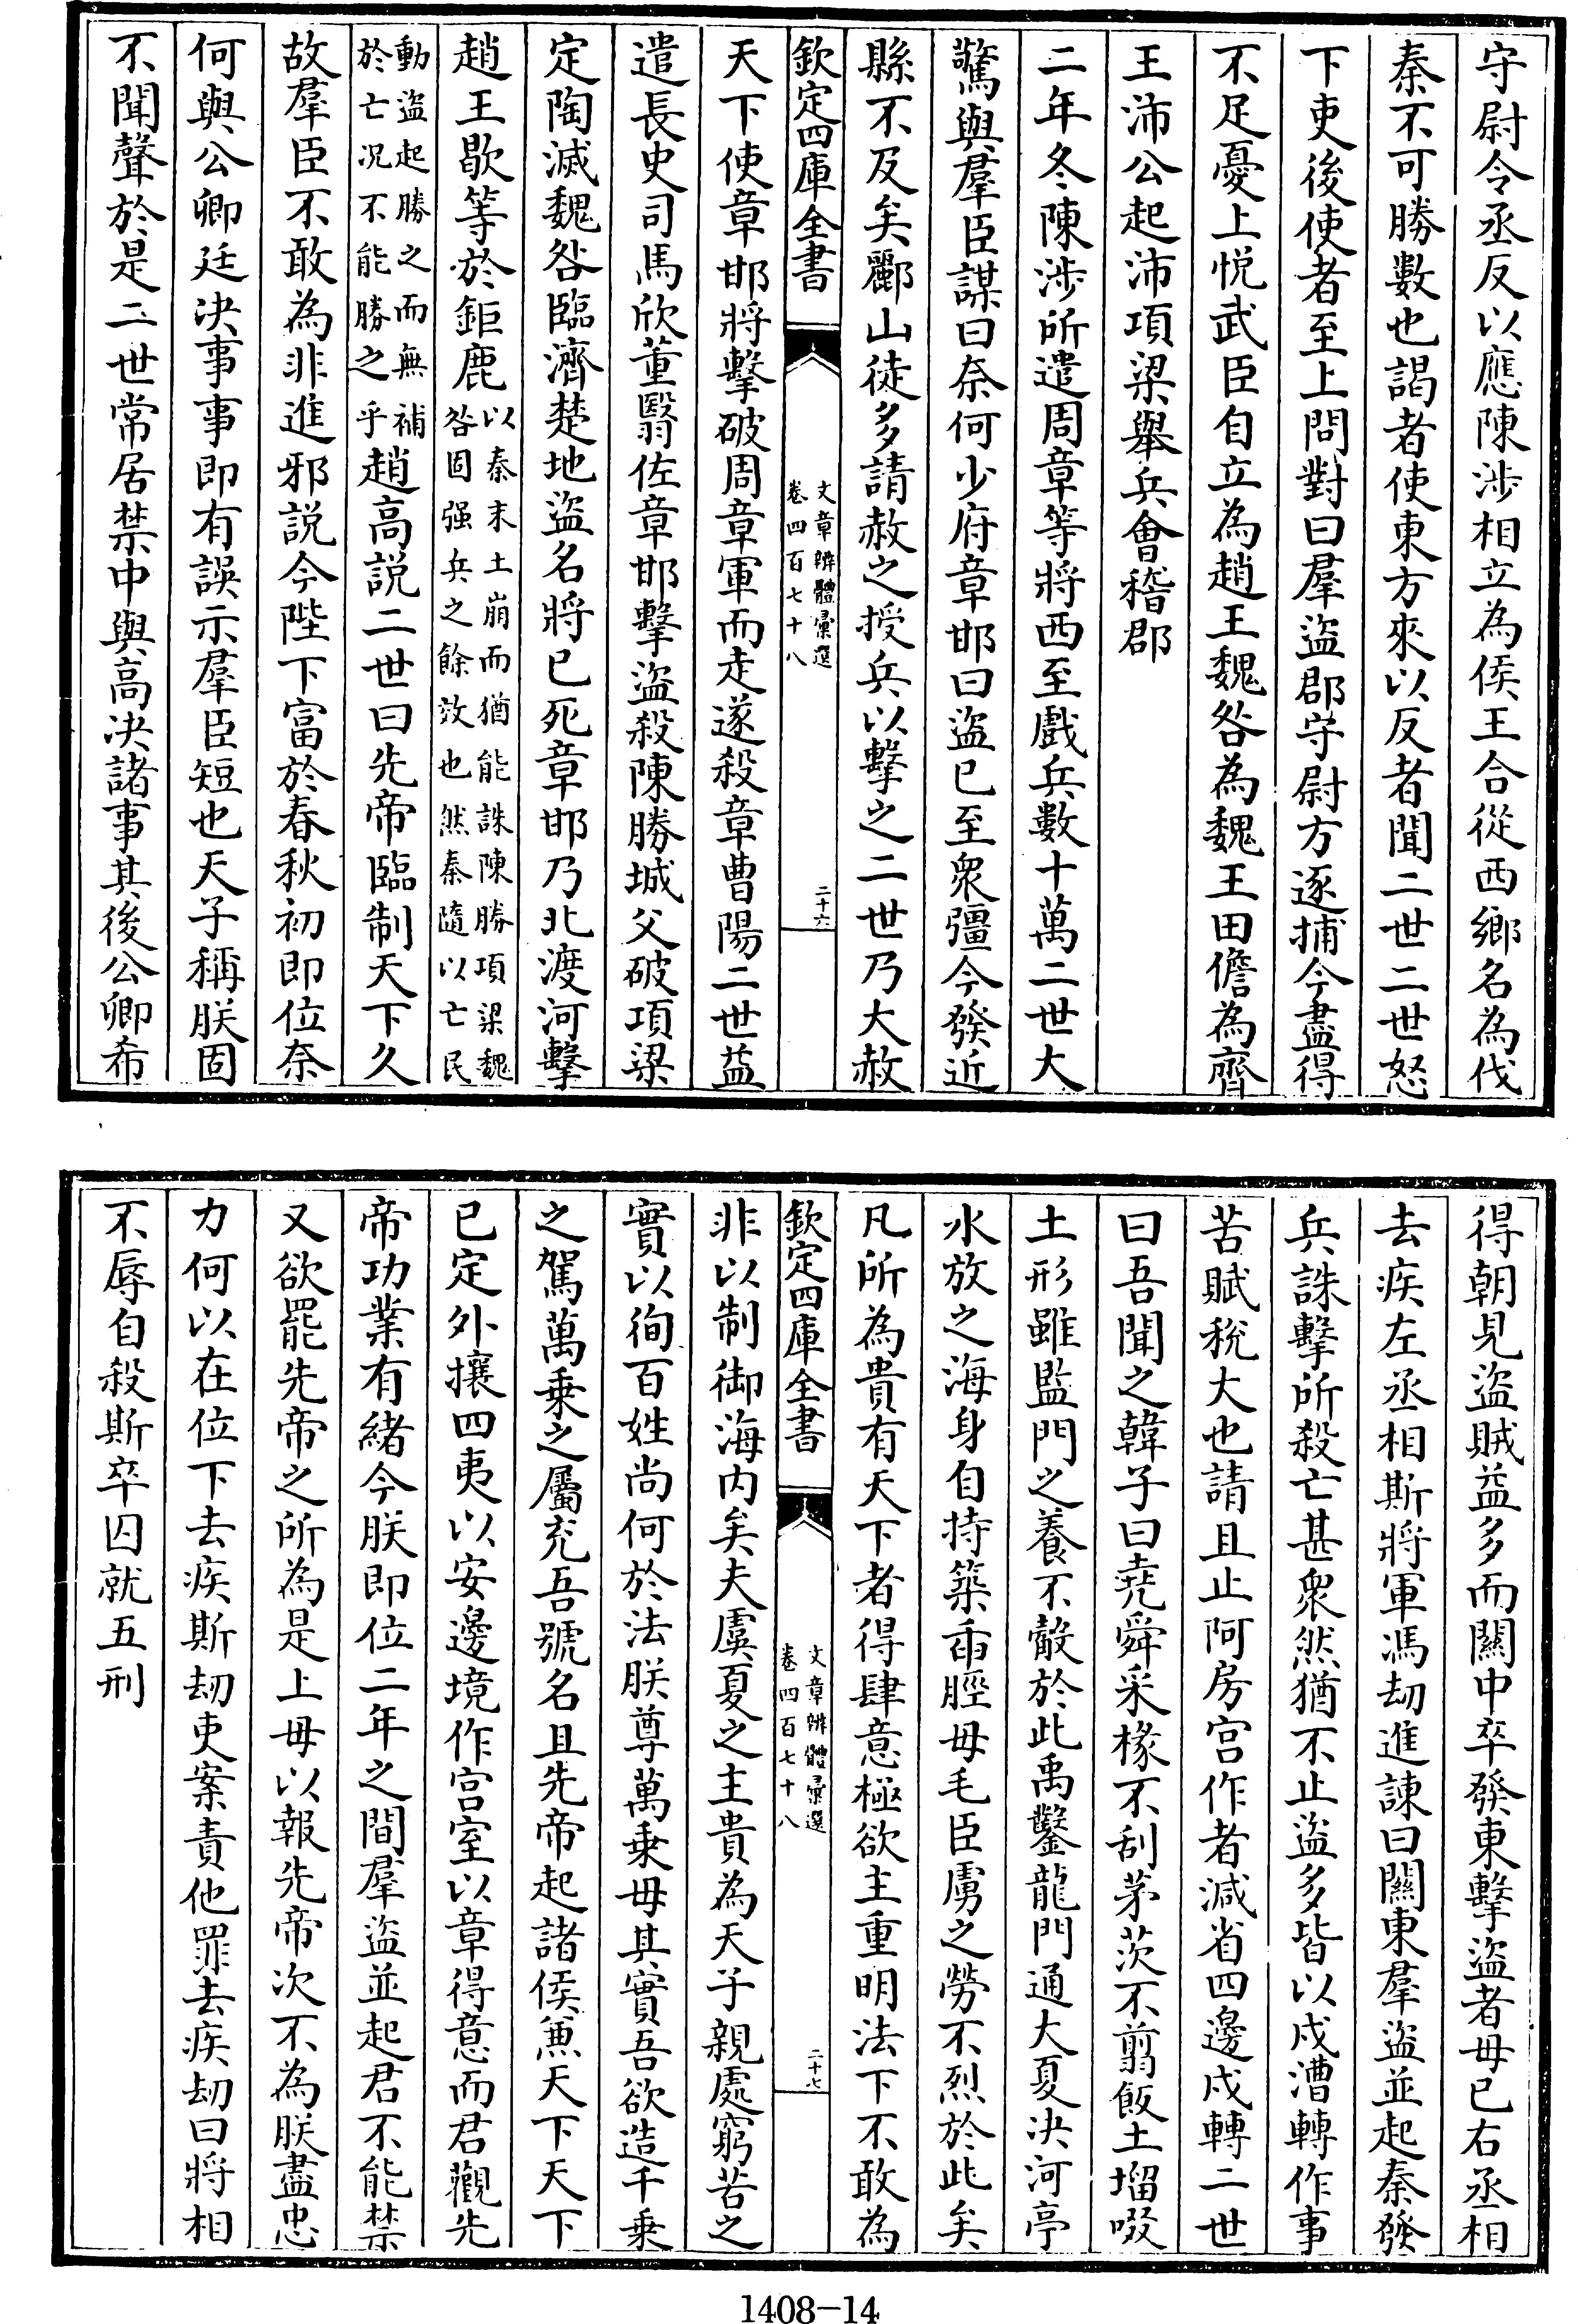 守尉令丞反以應陳涉相立為侯王合從西鄉名為伐
秦不可勝數也謁者使東方來以反者聞二世二世怒
下吏後使者至上問對曰羣盜郡守尉方逐捕今盡得
不足憂上悦武臣自立為趙王魏咎為魏王田儋為齊
王沛公起沛項梁舉兵會稽郡
二年冬陳涉所遣周章等將西至戲兵數十萬二世大
驚與羣臣謀曰奈何少府章邯曰盜已至衆彊今發近
縣不及矣酈山徒多請赦之授兵以擊之二世乃大赦
欽定四庫全書
文章辨體彙選
卷四百七十八
二十六
天下使章邯將擊破周章軍而走遂殺章曹陽二世益
遣長史司馬欣董翳佐章邯擊盜殺陳勝城父破項梁
定陶滅魏咎臨濟楚地盜名將已死章邯乃北渡河擊
趙王歇等於鉅鹿以秦末土崩而猶能誅陳勝項梁魏
咎固强兵之餘效也然秦隨以亡民
動盜起勝之而無補
於亡况不能勝之乎趙高説二世曰先帝臨制天下久
故羣臣不敢為非進邪説今陛下富於春秋初即位奈
何與公卿廷決事事即有誤示羣臣短也天子稱朕固
不聞聲於是二世常居禁中與高决諸事其後公卿希
得朝見盜賊益多而關中卒發東擊盜者毋已右丞相
去疾左丞相斯將軍馮劫進諫曰關東羣盜並起秦發
兵誅擊所殺亡甚衆然猶不止盜多皆以戍漕轉作事
苦賦稅大也請且止阿房宫作者減省四邊戍轉二世
曰吾聞之韓子曰堯舜采椽不刮茅茨不翦飯土塯啜
土形雖監門之養不觳於此禹鑿龍門通大夏决河亭
水放之海身自持築臿脛毋毛臣虜之勞不烈於此矣
凡所為貴有天下者得肆意極欲主重明法下不敢為
欽定四庫全書
文章辨體彙選
卷四百七十八
二十七
非以制御海内矣夫虞夏之主貴為天子親處窮苦之
實以徇百姓尚何於法朕尊萬乘毋其實吾欲造千乘
之駕萬乘之屬充吾號名且先帝起諸侯兼天下天下
已定外攘四夷以安邊境作宫室以章得意而君觀先
帝功業有緒今朕即位二年之間羣盜並起君不能禁
又欲罷先帝之所為是上毋以報先帝次不為朕盡忠
力何以在位下去疾斯劫吏案責他罪去疾劫曰將相
不辱自殺斯卒囚就五刑
1408-14